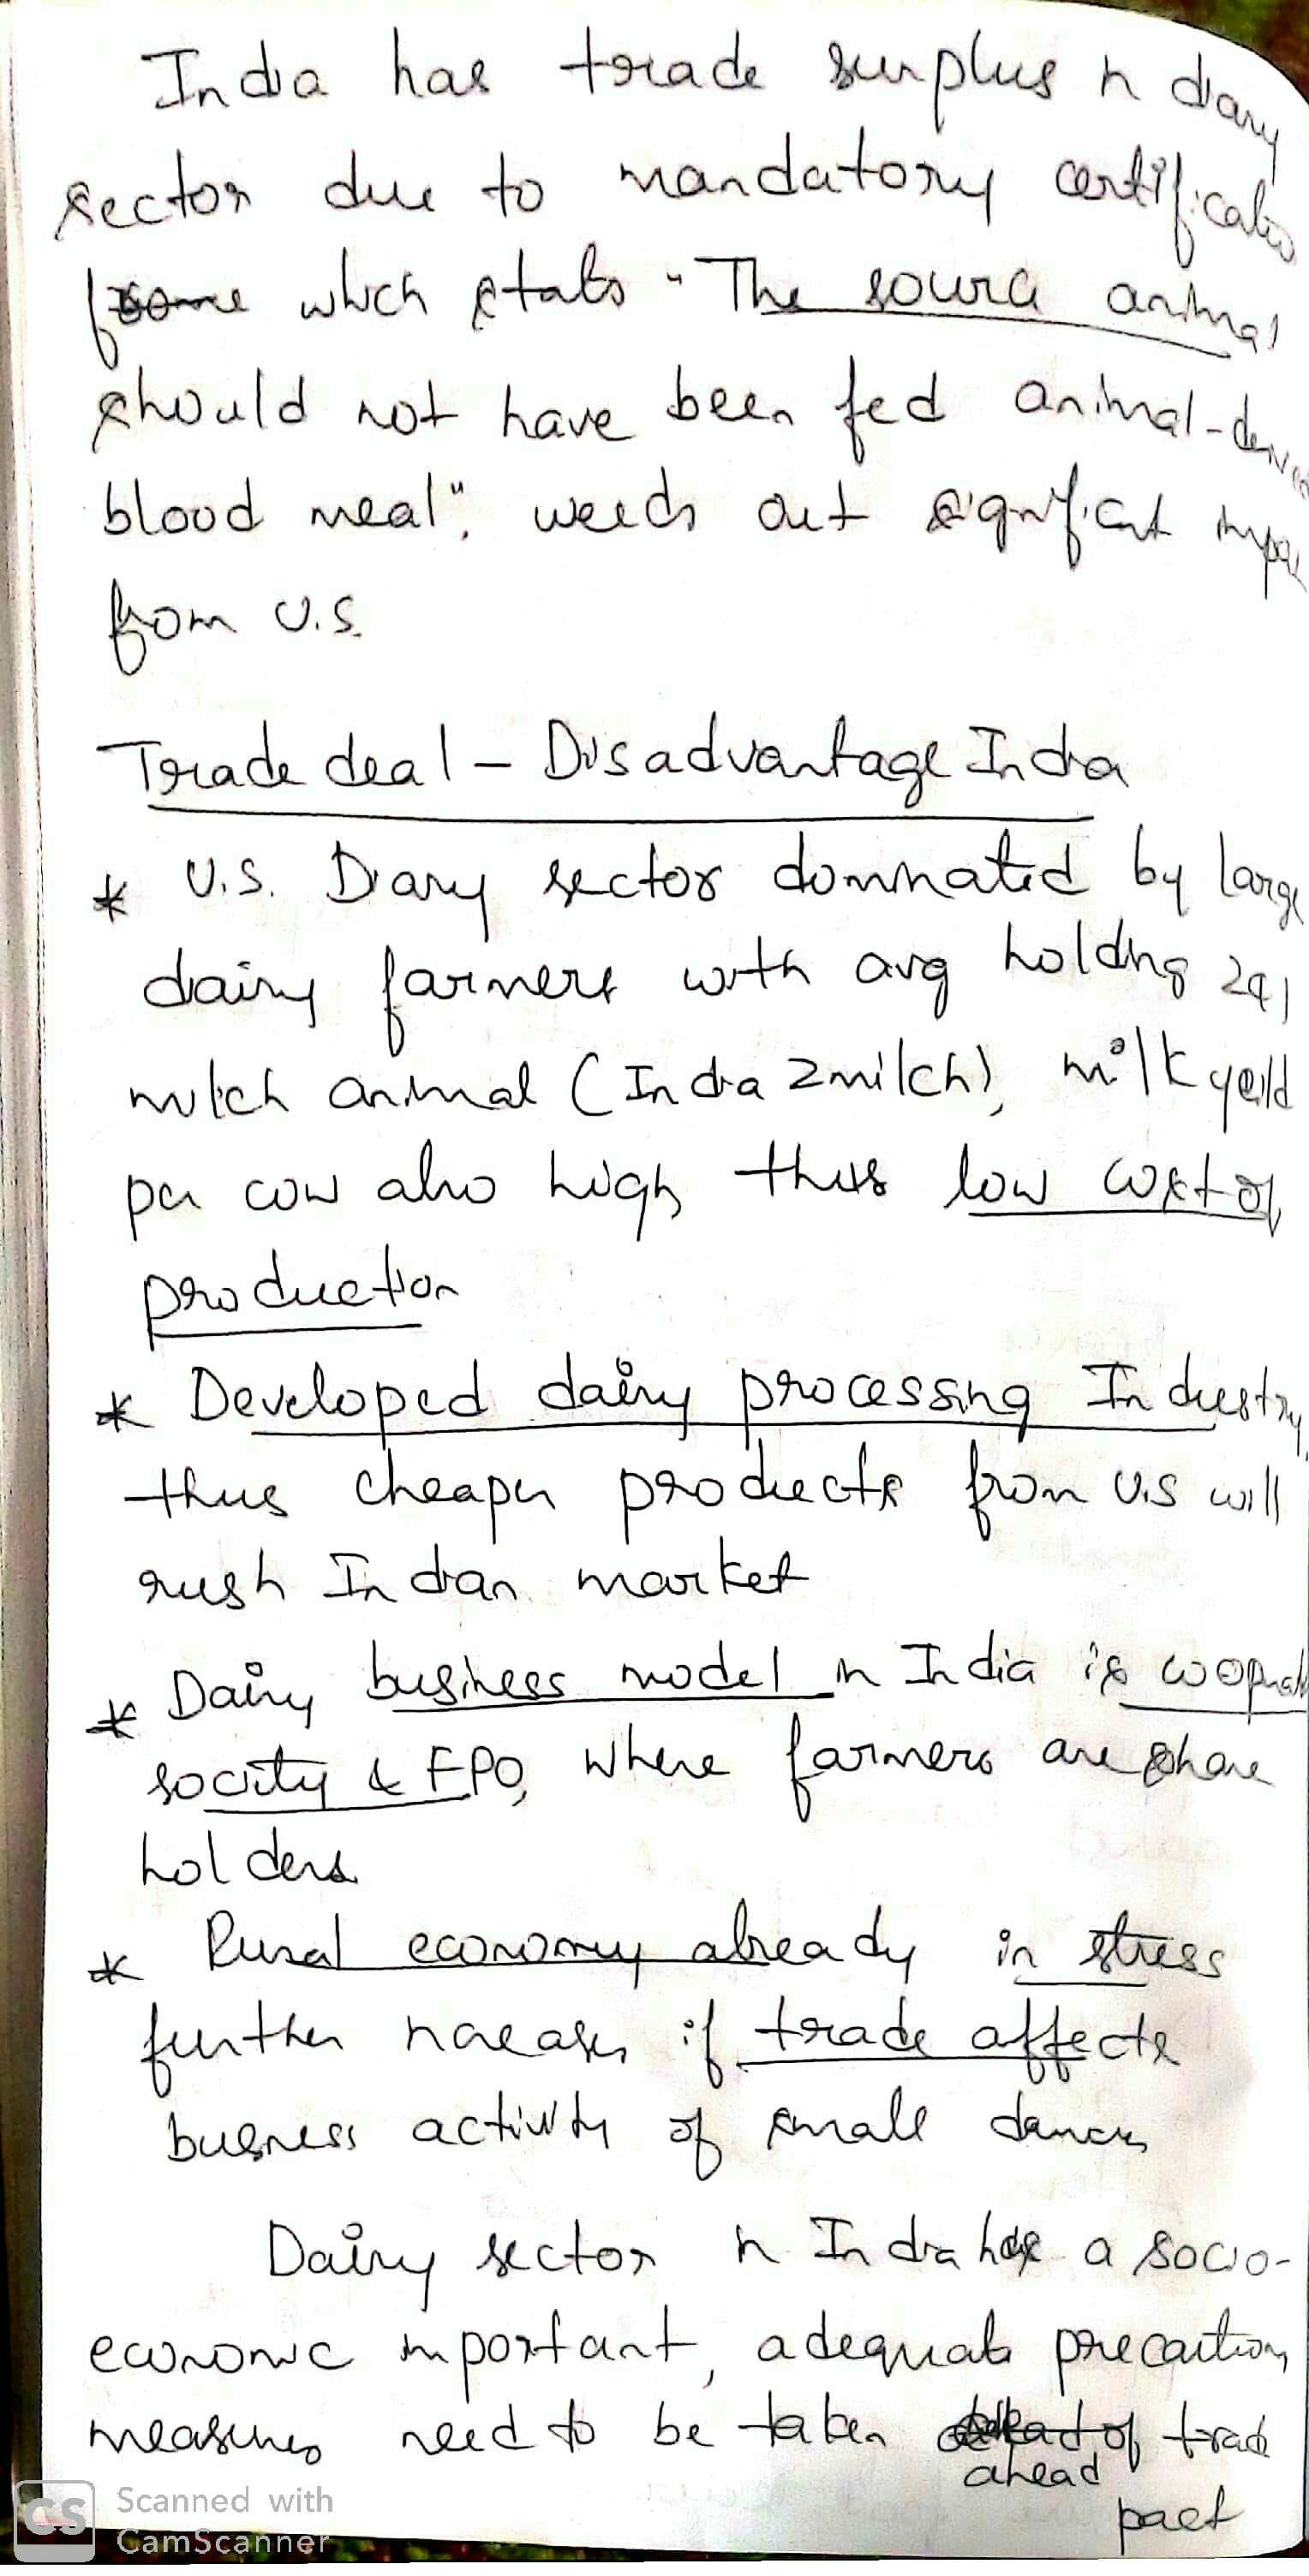 India has trade surplus in diary
sector due to mandatory certificatio
which stats "The source animal
should not have been fed animal-
blood meal", weeds out significant
from U.S.
Trade deal - Disadvantage India
* U.S. Diary sector dominated by large
dairy farmers with avg holding 291
milch animal (India 2 milch), milk yeild
per cow also high, thus low cost of
production
* Developed dairy processing Industry,
thus cheaper products from U.S will
rush Indian market
* Dairy business model in India is
socity & FPO, where farmers are share
holders
* Rural economy already in stress
further increases if trade affects
business activity of small
Dairy sector in India has a socio-
economic important, adequate precaution
measures need to be taken trade
ahead
pact
Scanned with
CS CamScanner